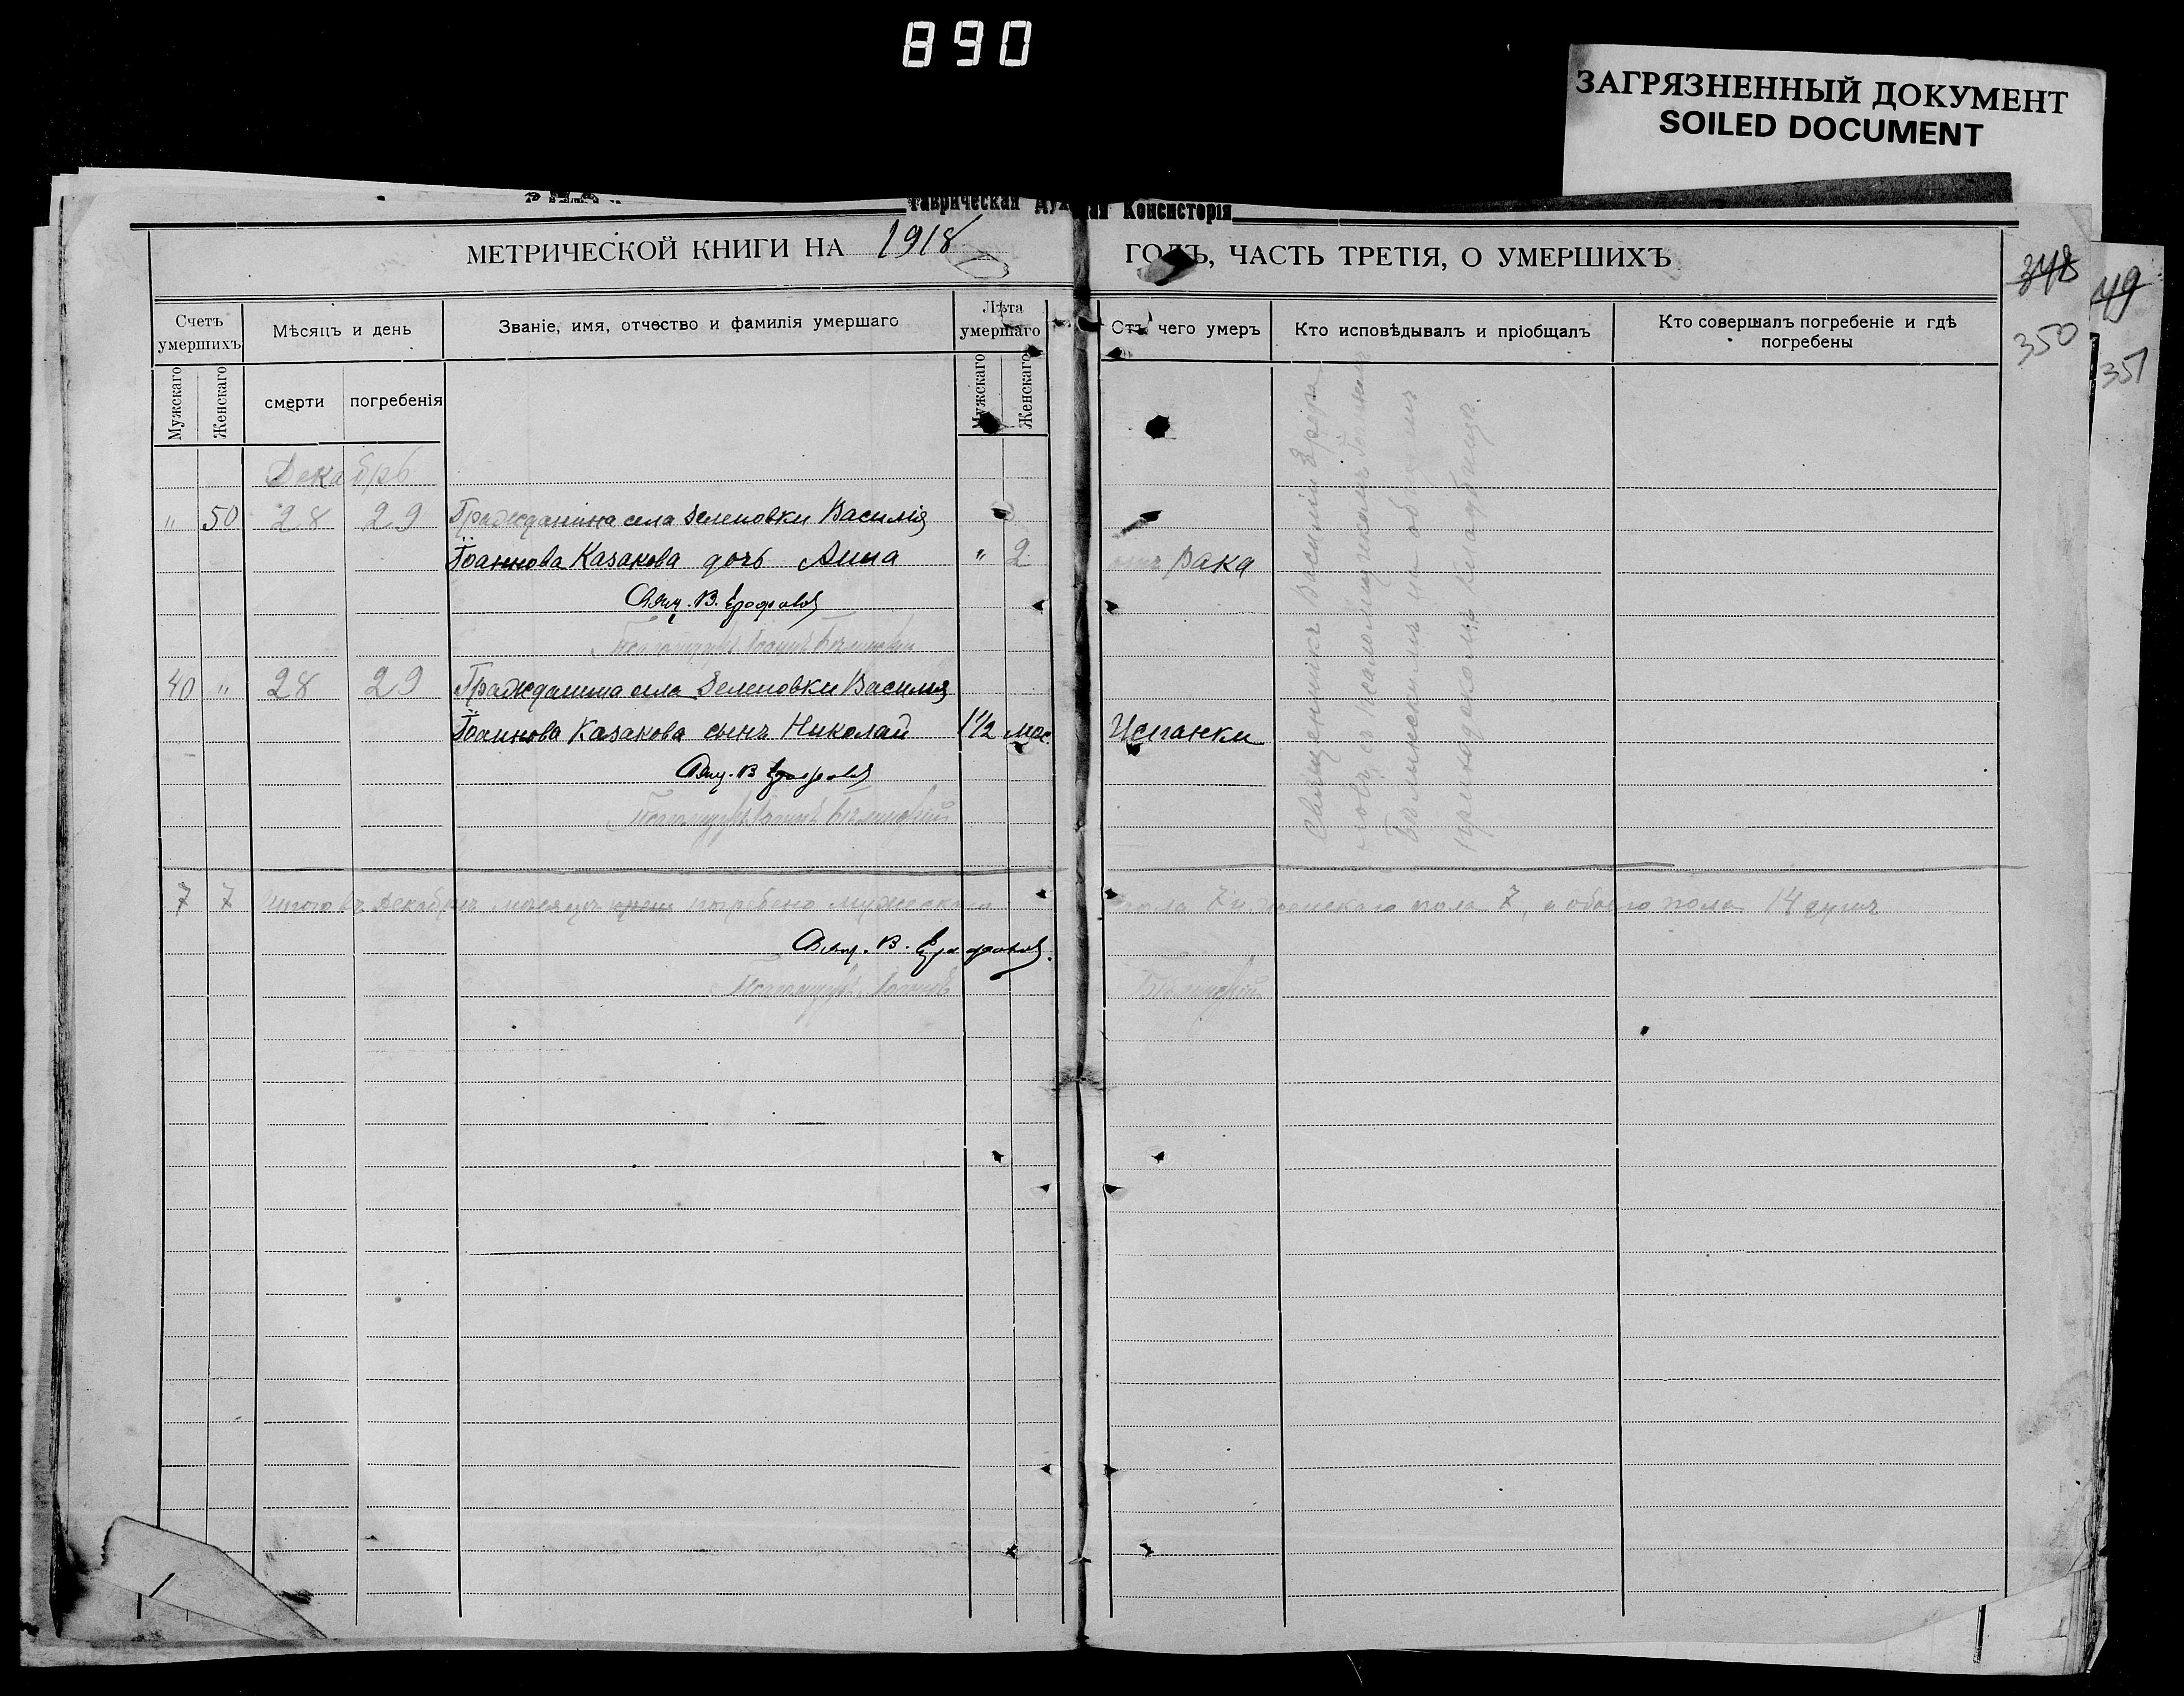 890
ЗАГРЯЗНЕННЫЙ ДОКУМЕНТ
SOILED DOCUMENT
Таврическая Консисторія
МЕТРИЧЕСКОЙ КНИГИ НА 1918 ГОДЪ, ЧАСТЬ ТРЕТІЯ, О УМЕРШИХЪ
348
350
49
351
Счетъ умершихъ
Мѣсяцъ и день
Званіе, имя, отчество и фамилія умершаго
Лѣта умершаго
Отъ чего умеръ
Кто исповѣдывалъ и пріобщалъ
Кто совершалъ погребеніе и гдѣ погребены
Мужскаго
Женскаго
смерти
погребенія
Мужскаго
Женскаго
Декабрь
" 50 28 29 Гражданина села Зеленовки Василія
Іоаннова Казакова дочь Анна " 2 отъ Рака
Свящ. В.
40 " 28 29 Гражданина села Зеленовки Василія
Іоаннова Казакова сынъ Николай 1 1/2 мес. Испанки
Свящ. В
Священникъ Василій
съ псаломщикомъ Іоанномъ
на общемъ
приходскомъ кладбищѣ.
7 7 Итого въ Декабрѣ мѣсяцѣ погребено мужескаго пола 7 и женскаго пола 7, а обоего пола 14 душъ
Свящ. В.
Псаломщикъ Іоаннъ